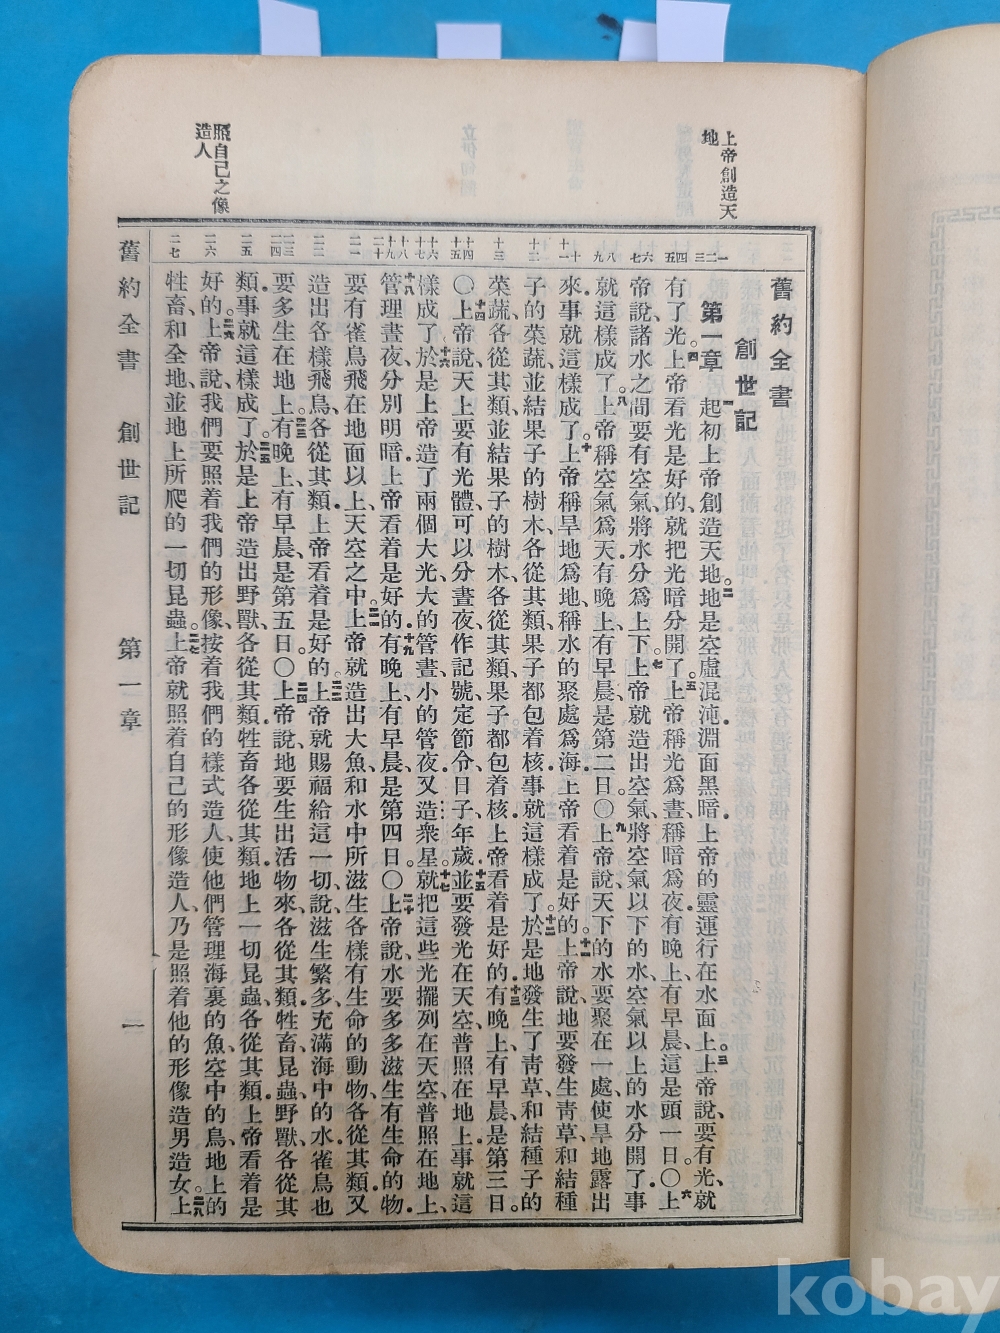 上帝創造天
地
照自己之像
造人
一二三
四五
六七
八九
十十一
十二
十三
十四十五
十六十七
十八十九二十
二一
二二
二三二四
二五
二六
二七
舊約全書
創世記
第一章 一起初上帝創造天地。二地是空虛混沌淵面黑暗上帝的靈運行在水面上。三上帝說要有光、就
有了光。四上帝看光是好的、就把光暗分開了。五上帝稱光爲晝、稱暗爲夜有晚上、有早晨、這是頭一日。〇六上
帝說、諸水之間要有空氣、將水分爲上下。七上帝就造出空氣、將空氣以下的水、空氣以上的水分開了、事
就這樣成了。八上帝稱空氣爲天有晚上、有早晨、是第二日。〇九上帝說、天下的水要聚在一處使旱地露出
來、事就這樣成了。十上帝稱旱地爲地、稱水的聚處爲海上帝看着是好的。十一上帝說、地要發生靑草、和結種
子的菜蔬、並結果子的樹木、各從其類、果子都包着核、事就這樣成了。十二於是地發生了靑草、和結種子的
菜蔬、各從其類、並結果子的樹木、各從其類、果子都包着核上帝看着是好的。十三有晚上、有早晨、是第三日。
〇十四上帝說、天上要有光體、可以分晝夜、作記號、定節令、日子、年歲。十五並要發光在天空、普照在地上事就這
樣成了。十六於是上帝造了兩個大光、大的管晝、小的管夜又造衆星。十七就把這些光擺列在天空、普照在地上、
十八管理晝夜、分別明暗上帝看着是好的。十九有晚上、有早晨、是第四日。〇二十上帝說、水要多多滋生有生命的物
要有雀鳥飛在地面以上天空之中。二一上帝就造出大魚、和水中所滋生各樣有生命的動物、各從其類又
造出各樣飛鳥、各從其類上帝看着是好的。二二上帝就賜福給這一切、說、滋生繁多、充滿海中的水雀鳥也
要多生在地上。二三有晚上、有早晨、是第五日。〇二四上帝說、地要生出活物來、各從其類牲畜、昆蟲、野獸、各從其
類、事就這樣成了。二五於是上帝造出野獸、各從其類牲畜、各從其類地上一切昆蟲、各從其類上帝看着是
好的。二六上帝說、我們要照着我們的形像、按着我們的樣式造人、使他們管理海裏的魚、空中的鳥、地上的
牲畜、和全地、並地上所爬的一切昆蟲。二七上帝就照着自己的形像造人、乃是照着他的形像造男造女。二八上
舊約全書 創世記 第一章 一
kobay